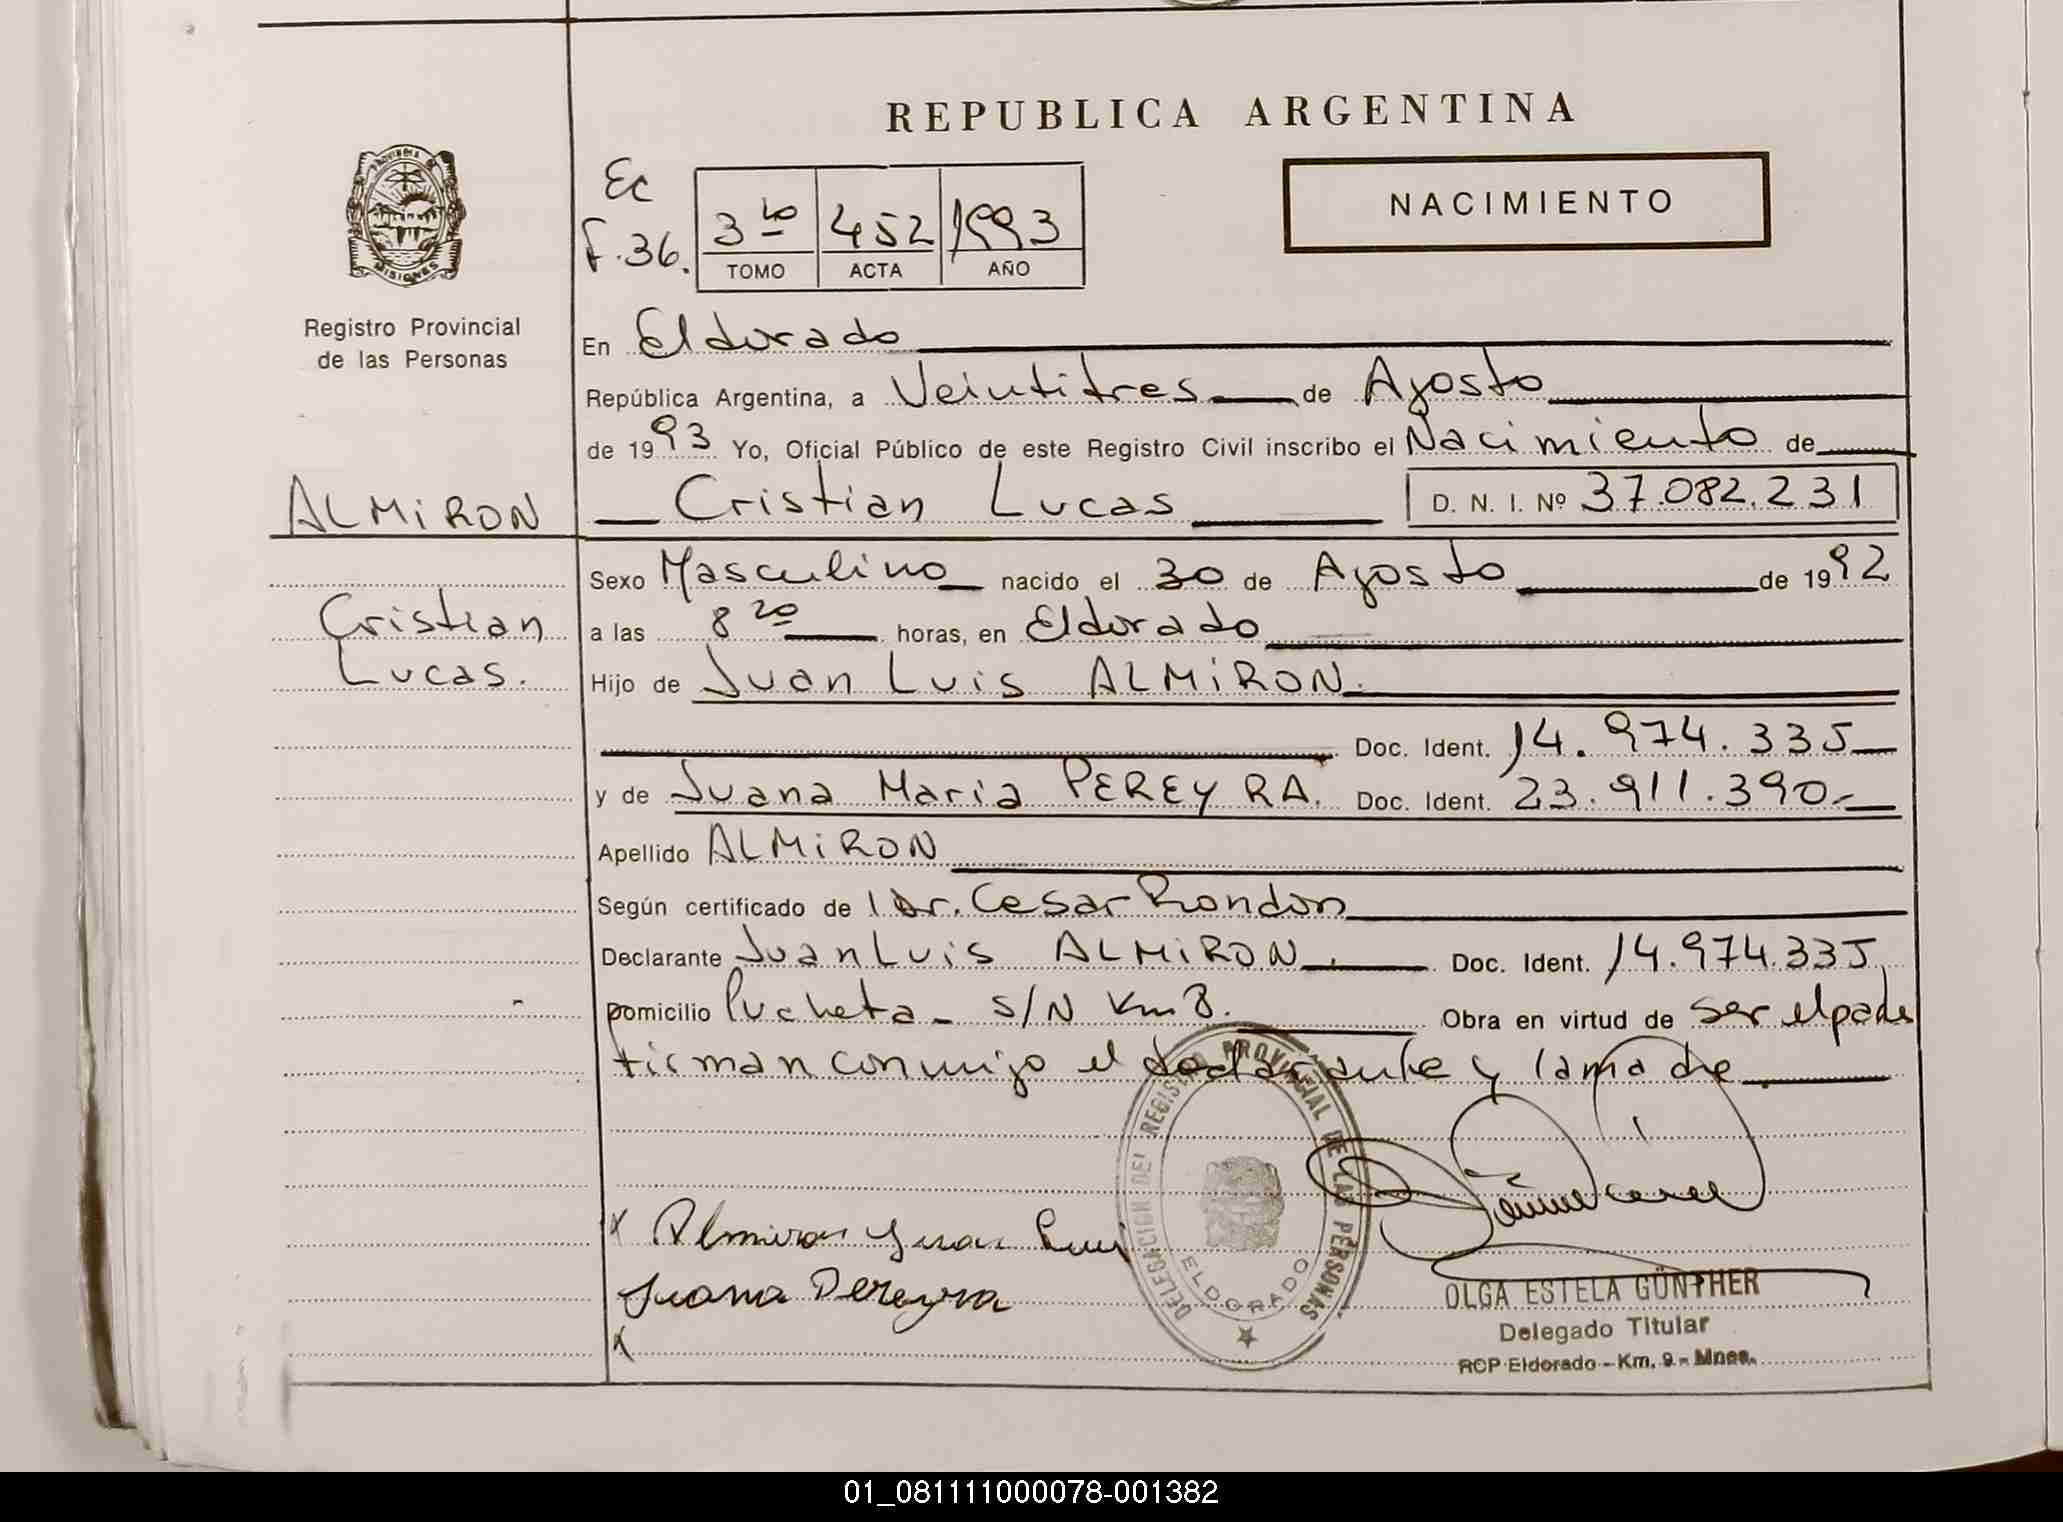 REPUBLICA ARGENTINA
NACIMIENTO
Ec
F.36.
3ro 452 1993
TOMO ACTA AÑO
PROVINCIA DE
MISIONES
Registro Provincial
de las Personas
En Eldorado
República Argentina, a Veintitres de Agosto
de 1993 Yo, Oficial Público de este Registro Civil inscribo el Nacimiento de
ALMiRON
Cristian Lucas D. N. I. Nº 37.082.231
Sexo Masculino nacido el 30 de Agosto de 1992
Cristian
Lucas.
a las 8 20 horas, en Eldorado
Hijo de Juan Luis ALMiRON.
Doc. Ident. 14.974.335
y de Juana Maria PEREYRA. Doc. Ident. 23.911.390.-
Apellido ALMiRON
Según certificado de Dr. Cesar Rondon
Declarante Juan Luis ALMiRON. Doc. Ident. 14.974.335
Domicilio Pucheta - S/N Km 8. Obra en virtud de ser el padre
firman conmigo el declarante y la madre
DELEGACION DEL REGISTRO PROVINCIAL DE LAS PERSONAS
ELDORADO
x Almiron Juan Luis
Juana Pereyra
x
OLGA ESTELA GÜNTHER
Delegado Titular
RCP Eldorado - Km. 9 - Mnes.
01_081111000078-001382